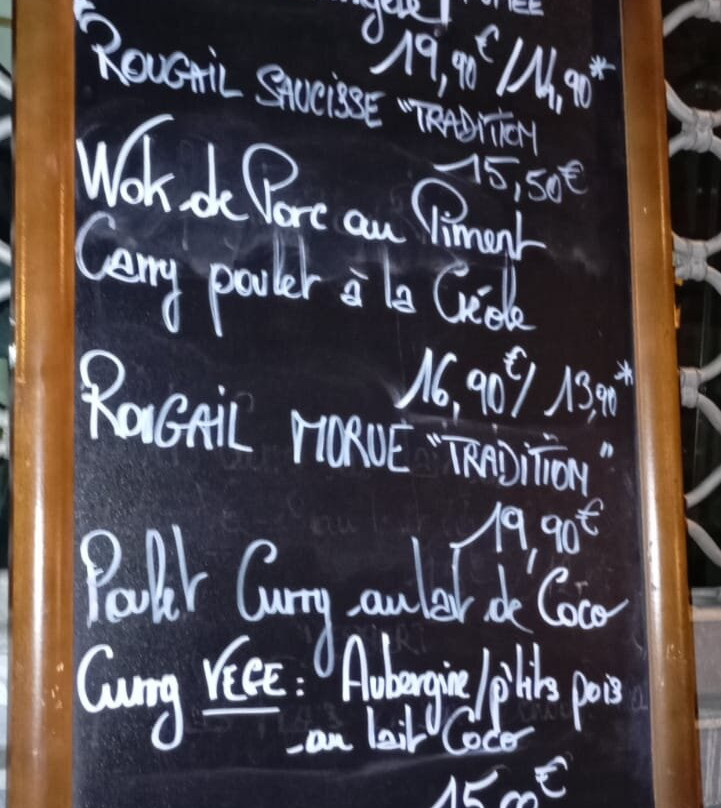 19,90€/14,90*
ROUGAIL SAUCISSE "TRADITION
15,50€
Wok de Porc au Piment
Carry poulet à la Créole
16,90€/ 13,90*
ROUGAIL MORUE "TRADITION"
19,90€
Poulet Curry au lait de Coco
Curry VEGE: Aubergine/p'tits pois
au lait Coco
€